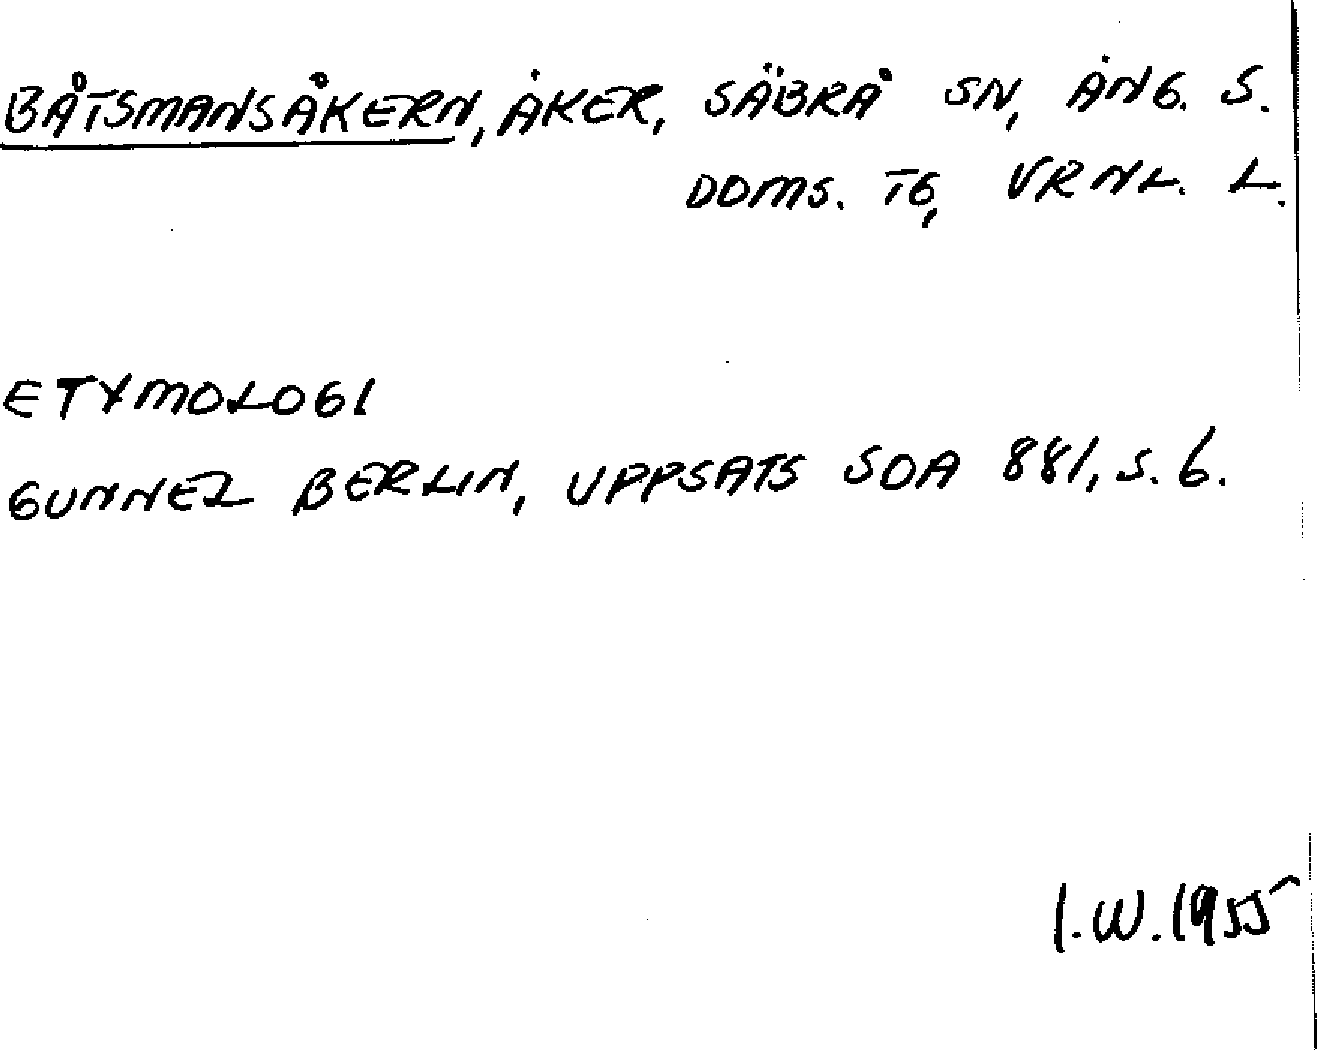 BÅTSMANSÅKERN, ÅKER, SÄBRÅ SN, ÅNG. S.
DOMS. TG, VRNL. L.
ETYMOLOGI
GUNNEL BERLIN, UPPSATS SOA 881, S. 6.
I.W. 1955